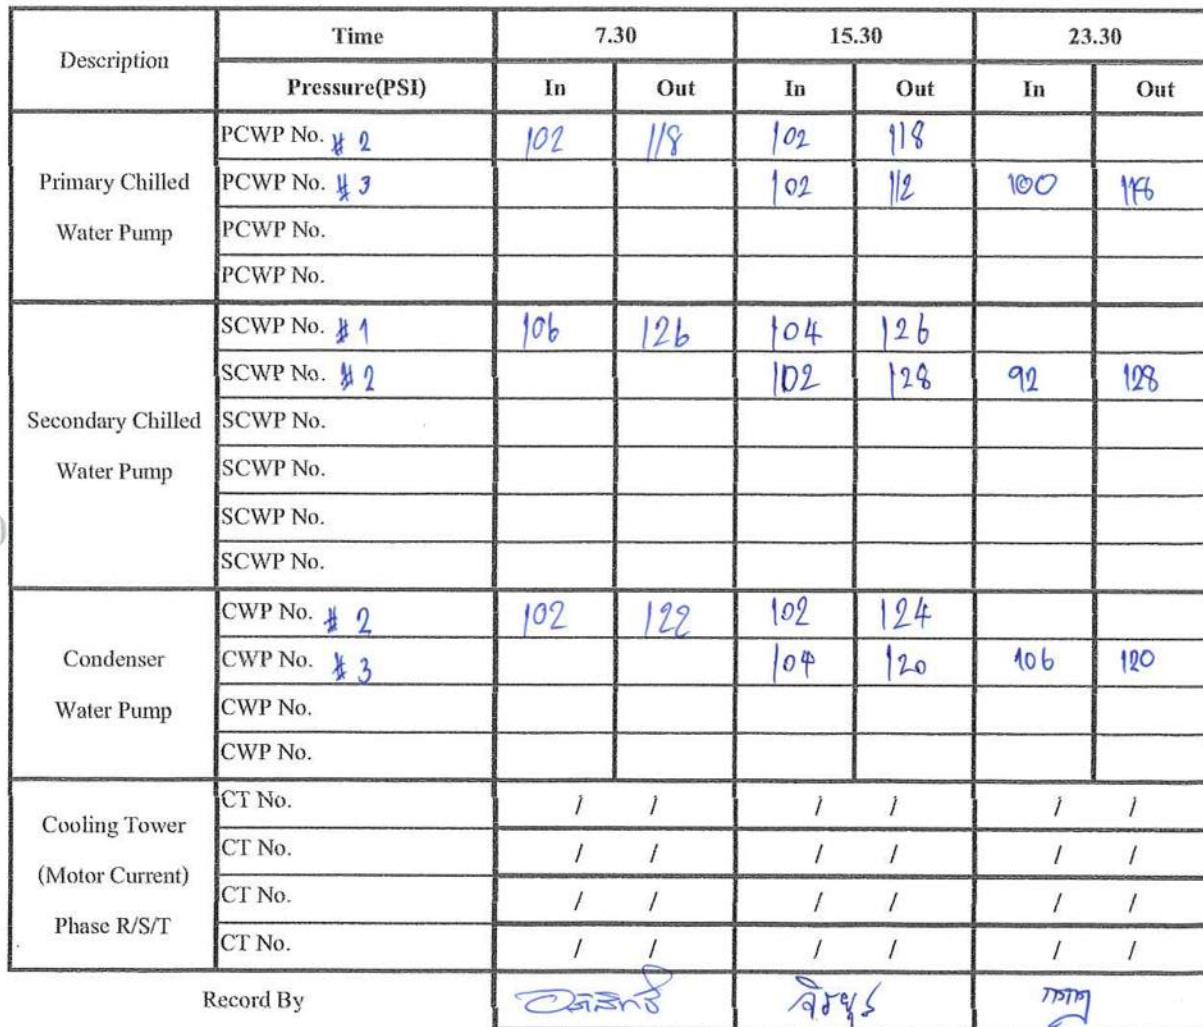 Description Time 7.30 15.30 23.30
Pressure(PSI) In Out In Out In Out
Primary Chilled Water Pump
PCWP No. # 2 102 118 102 118
PCWP No. # 3 102 112 100
PCWP No.
PCWP No.
Secondary Chilled Water Pump
SCWP No. # 1 106 126 104 126
SCWP No. # 2 102 128 92 128
SCWP No.
SCWP No.
SCWP No.
SCWP No.
Condenser Water Pump
CWP No. # 2 102 122 102 124
CWP No. # 3 104 120 106 120
CWP No.
CWP No.
Cooling Tower (Motor Current) Phase R/S/T
CT No. / / / / / /
CT No. / / / / / /
CT No. / / / / / /
CT No. / / / / / /
Record By